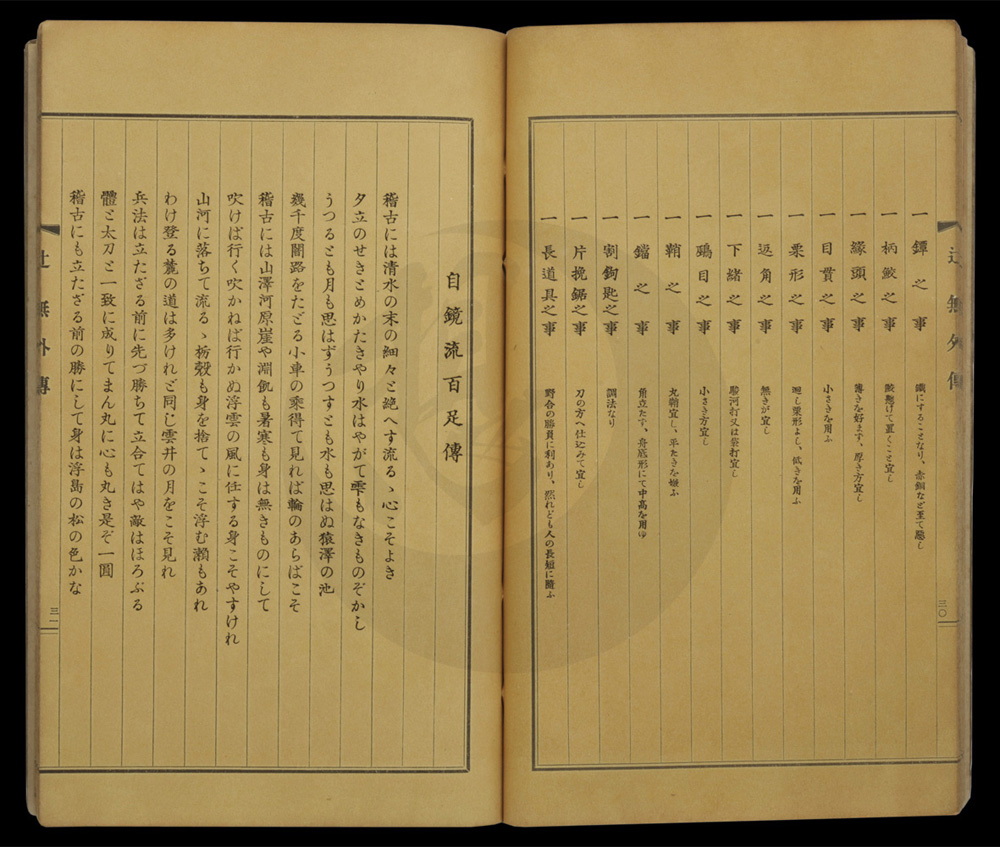 辻無外傳
一 鐔之事 鐵にすることなり、赤銅など至て惡し
一 柄鮫之事 鮫懸けて置くこと宜し
一 緣頭之事 薄きを好まず、厚き方宜し
一 目貫之事 小さきを用ふ
一 栗形之事 廻し栗形よし、低きを用ふ
一 返角之事 無きが宜し
一 下緒之事 駿河打又は袋打宜し
一 鵐目之事 小さき方宜し
一 鞘之事 丸鞘宜し、平たきを嫌ふ
一 鐺之事 角立たず、舟底形にて中高を用ゆ
一 割鉤匙之事 調法なり
一 片挽鋸之事 刀の方へ仕込みて宜し
一 長道具之事 野合の勝負に利あり、然れども人の長短に隨ふ
三〇
自鏡流百足傳
稽古には清水の末の細々と絶へす流るゝ心こそよき
夕立のせきとめかたきやり水はやがて雫もなきものぞかし
うつるとも月も思はずうつすとも水も思はぬ猿澤の池
幾千度闇路をたどる小車の乘得て見れば輪のあらばこそ
稽古には山澤河原崖や淵飢も暑寒も身は無きものにして
吹けば行く吹かねば行かぬ浮雲の風に任する身こそやすけれ
山河に落ちて流るゝ栃殼も身を捨てゝこそ浮む瀬もあれ
わけ登る麓の道は多けれど同じ雲井の月をこそ見れ
兵法は立たざる前に先づ勝ちて立合てはや敵はほろぶる
體と太刀と一致に成りてまん丸に心も丸き是ぞ一圓
稽古にも立たざる前の勝にして身は浮島の松の色かな
辻無外傳
三一